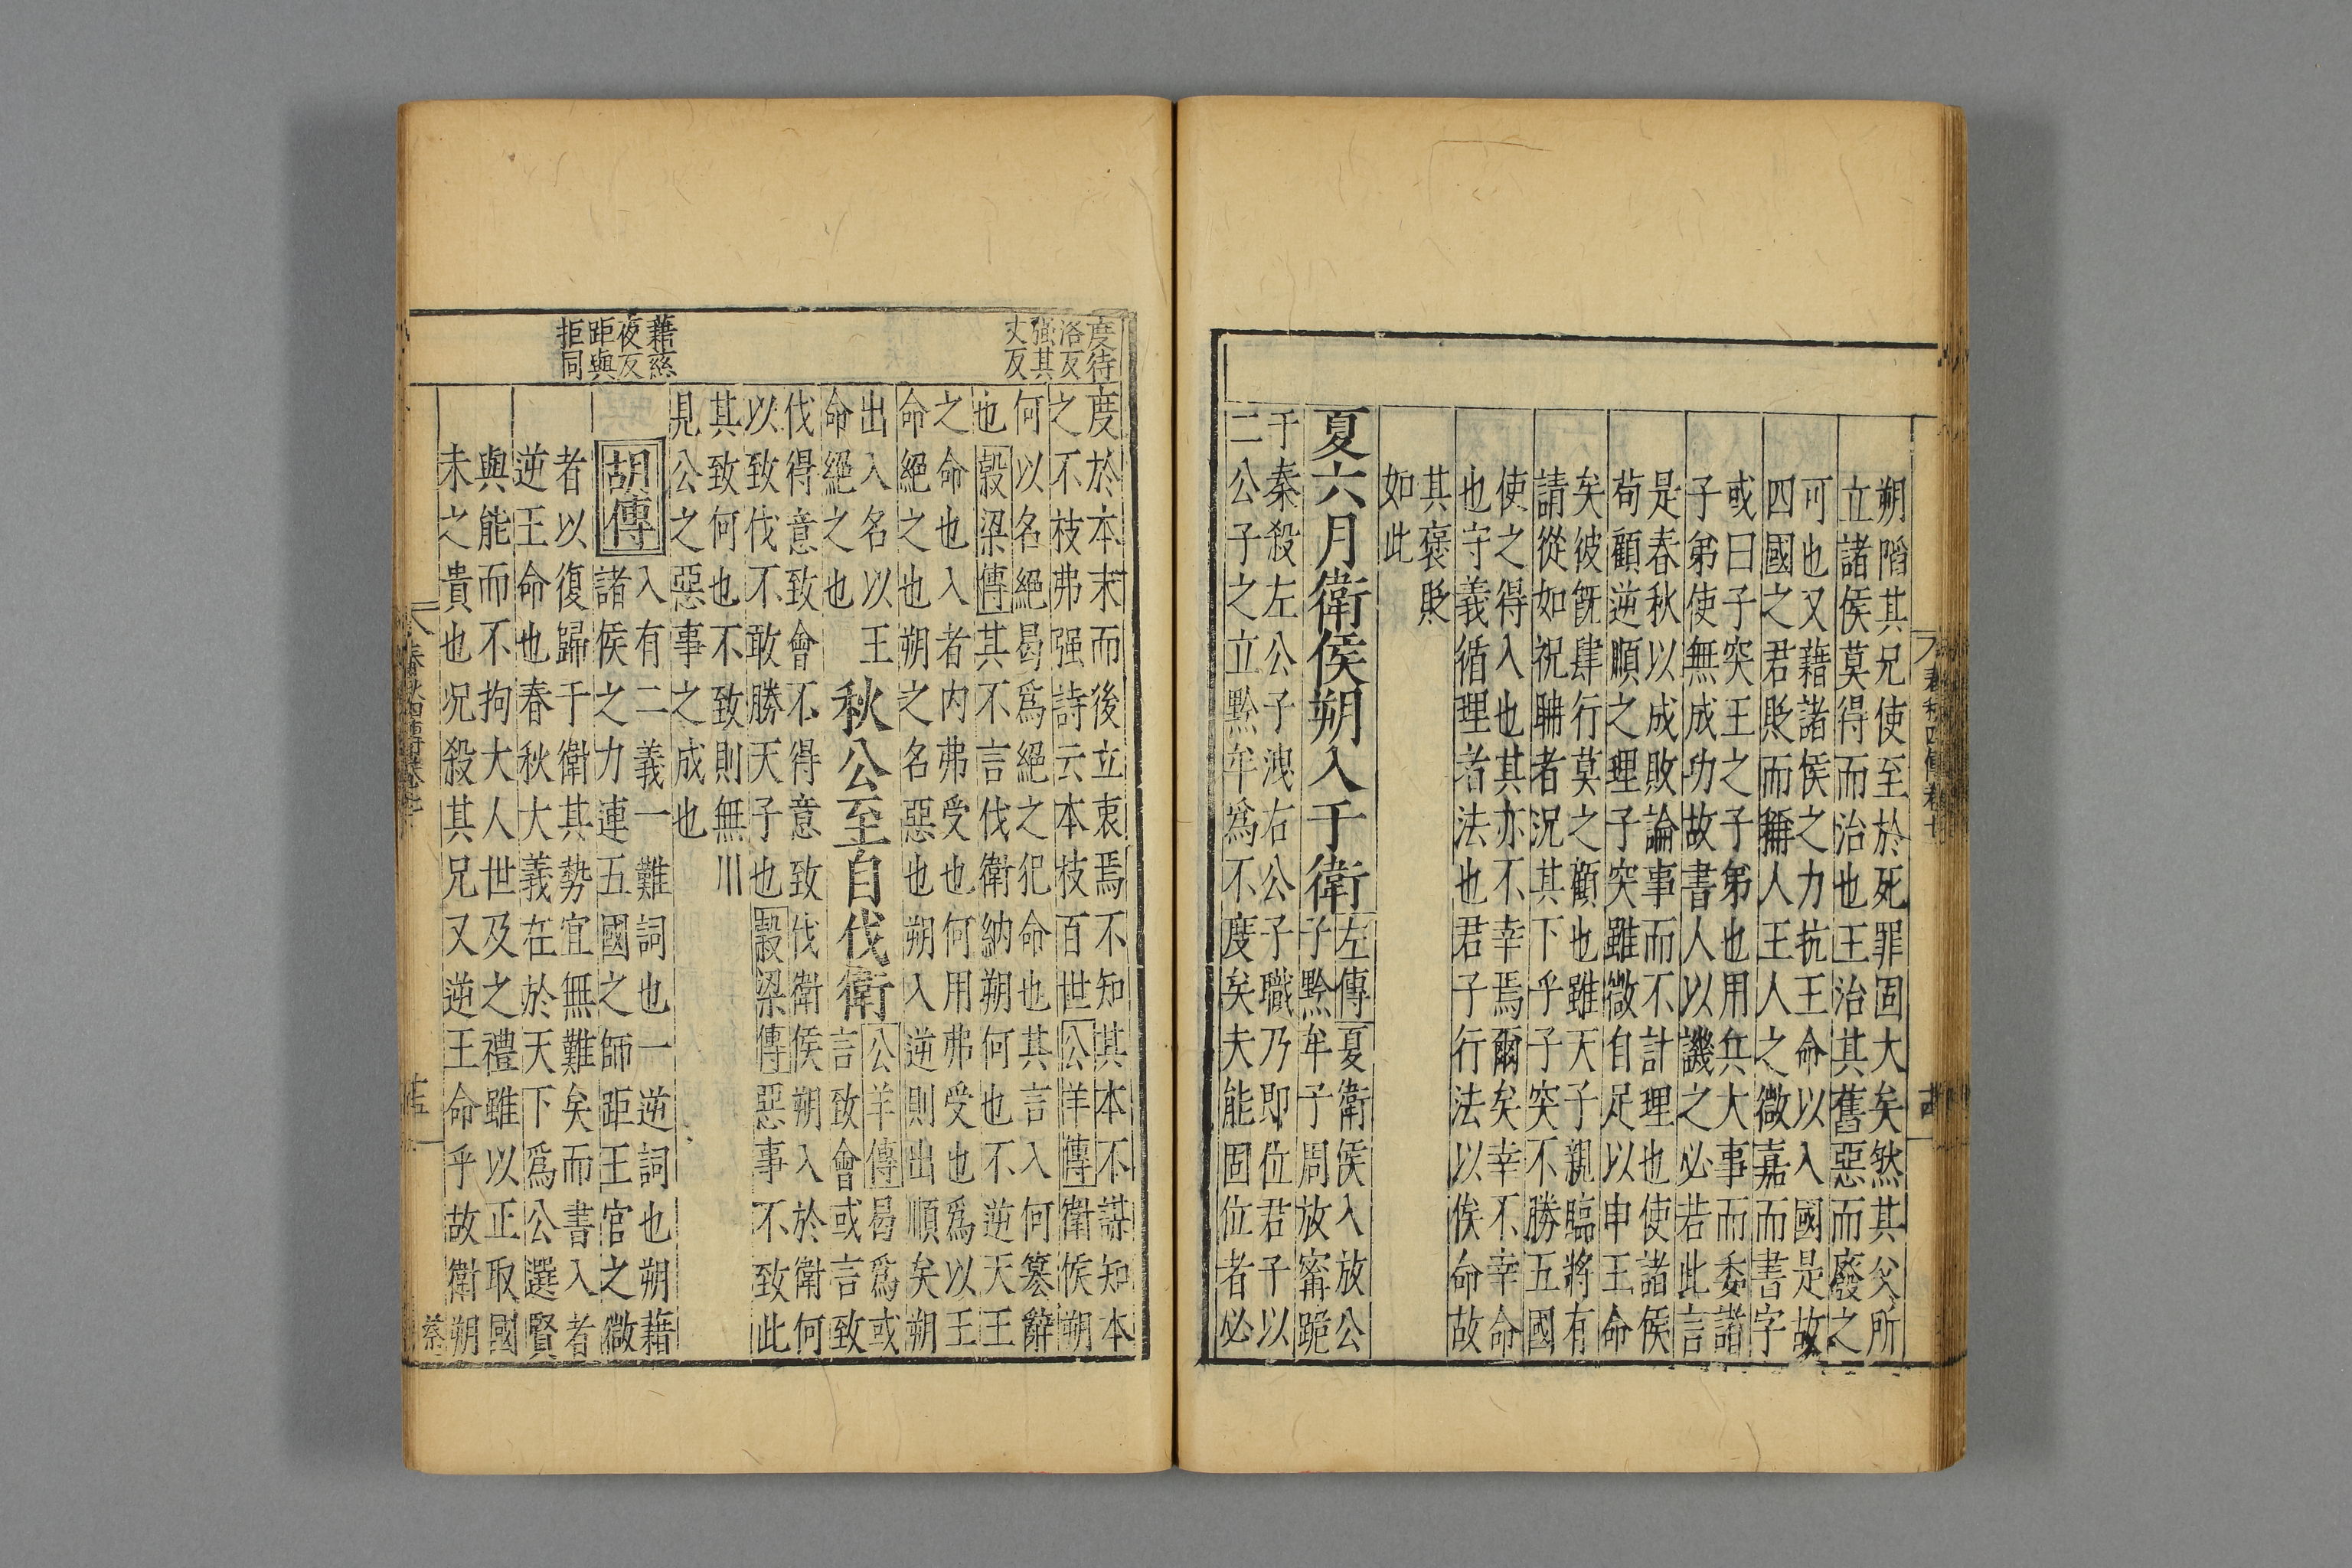 朔陷其兄使至於死罪固大矣然其父所
立諸侯莫得而治也王治其舊惡而廢之
可也又藉諸侯之力抗王命以入國是故
四國之君貶而稱人王人之微嘉而書字
或曰子突王之子弟也用兵大事而委諸
子弟使無成功故書人以譏之必若此言
是春秋以成敗論事而不計理也使諸侯
苟顧逆順之理子突雖微自足以申王命
矣彼旣肆行莫之顧也雖天子親臨將有
請從如祝聃者況其下乎子突不勝五國
使之得入也其亦不幸焉爾矣幸不幸命
也守義循理者法也君子行法以俟命故
其褒貶
如此
夏六月衛侯朔入于衛
左傳夏衛侯入放公
子黔牟子周放甯跪
于秦殺左公子洩右公子職乃即位君子以
二公子之立黔牟爲不度矣夫能固位者必
度待
洛反
强其
丈反
度於本末而後立衷焉不知其本不謀知本
之不枝弗强詩云本枝百世公羊傳衛侯朔
何以名絕曷爲絕之犯命也其言入何簒辭
也穀梁傳其不言伐衛納朔何也不逆天王
之命也入者內弗受也何用弗受也爲以王
命絕之也朔之名惡也朔入逆則出順矣朔
出入名以王
命絕之也
秋公至自伐衛
公羊傳曷爲或
言致會或言致
伐得意致會不得意致伐衛侯朔入於衛何
以致伐不敢勝天子也穀梁傳惡事不致此
其致何也不致則無川
見公之惡事之成也
藉慈
夜反
距與
拒同
胡傳
入有二義一難詞也一逆詞也朔藉
諸侯之力連五國之師距王官之微
者以復歸于衛其勢宜無難矣而書入者
逆王命也春秋大義在於天下爲公選賢
與能而不拘大人世及之禮雖以正取國
未之貴也況殺其兄又逆王命乎故衛朔
蔡